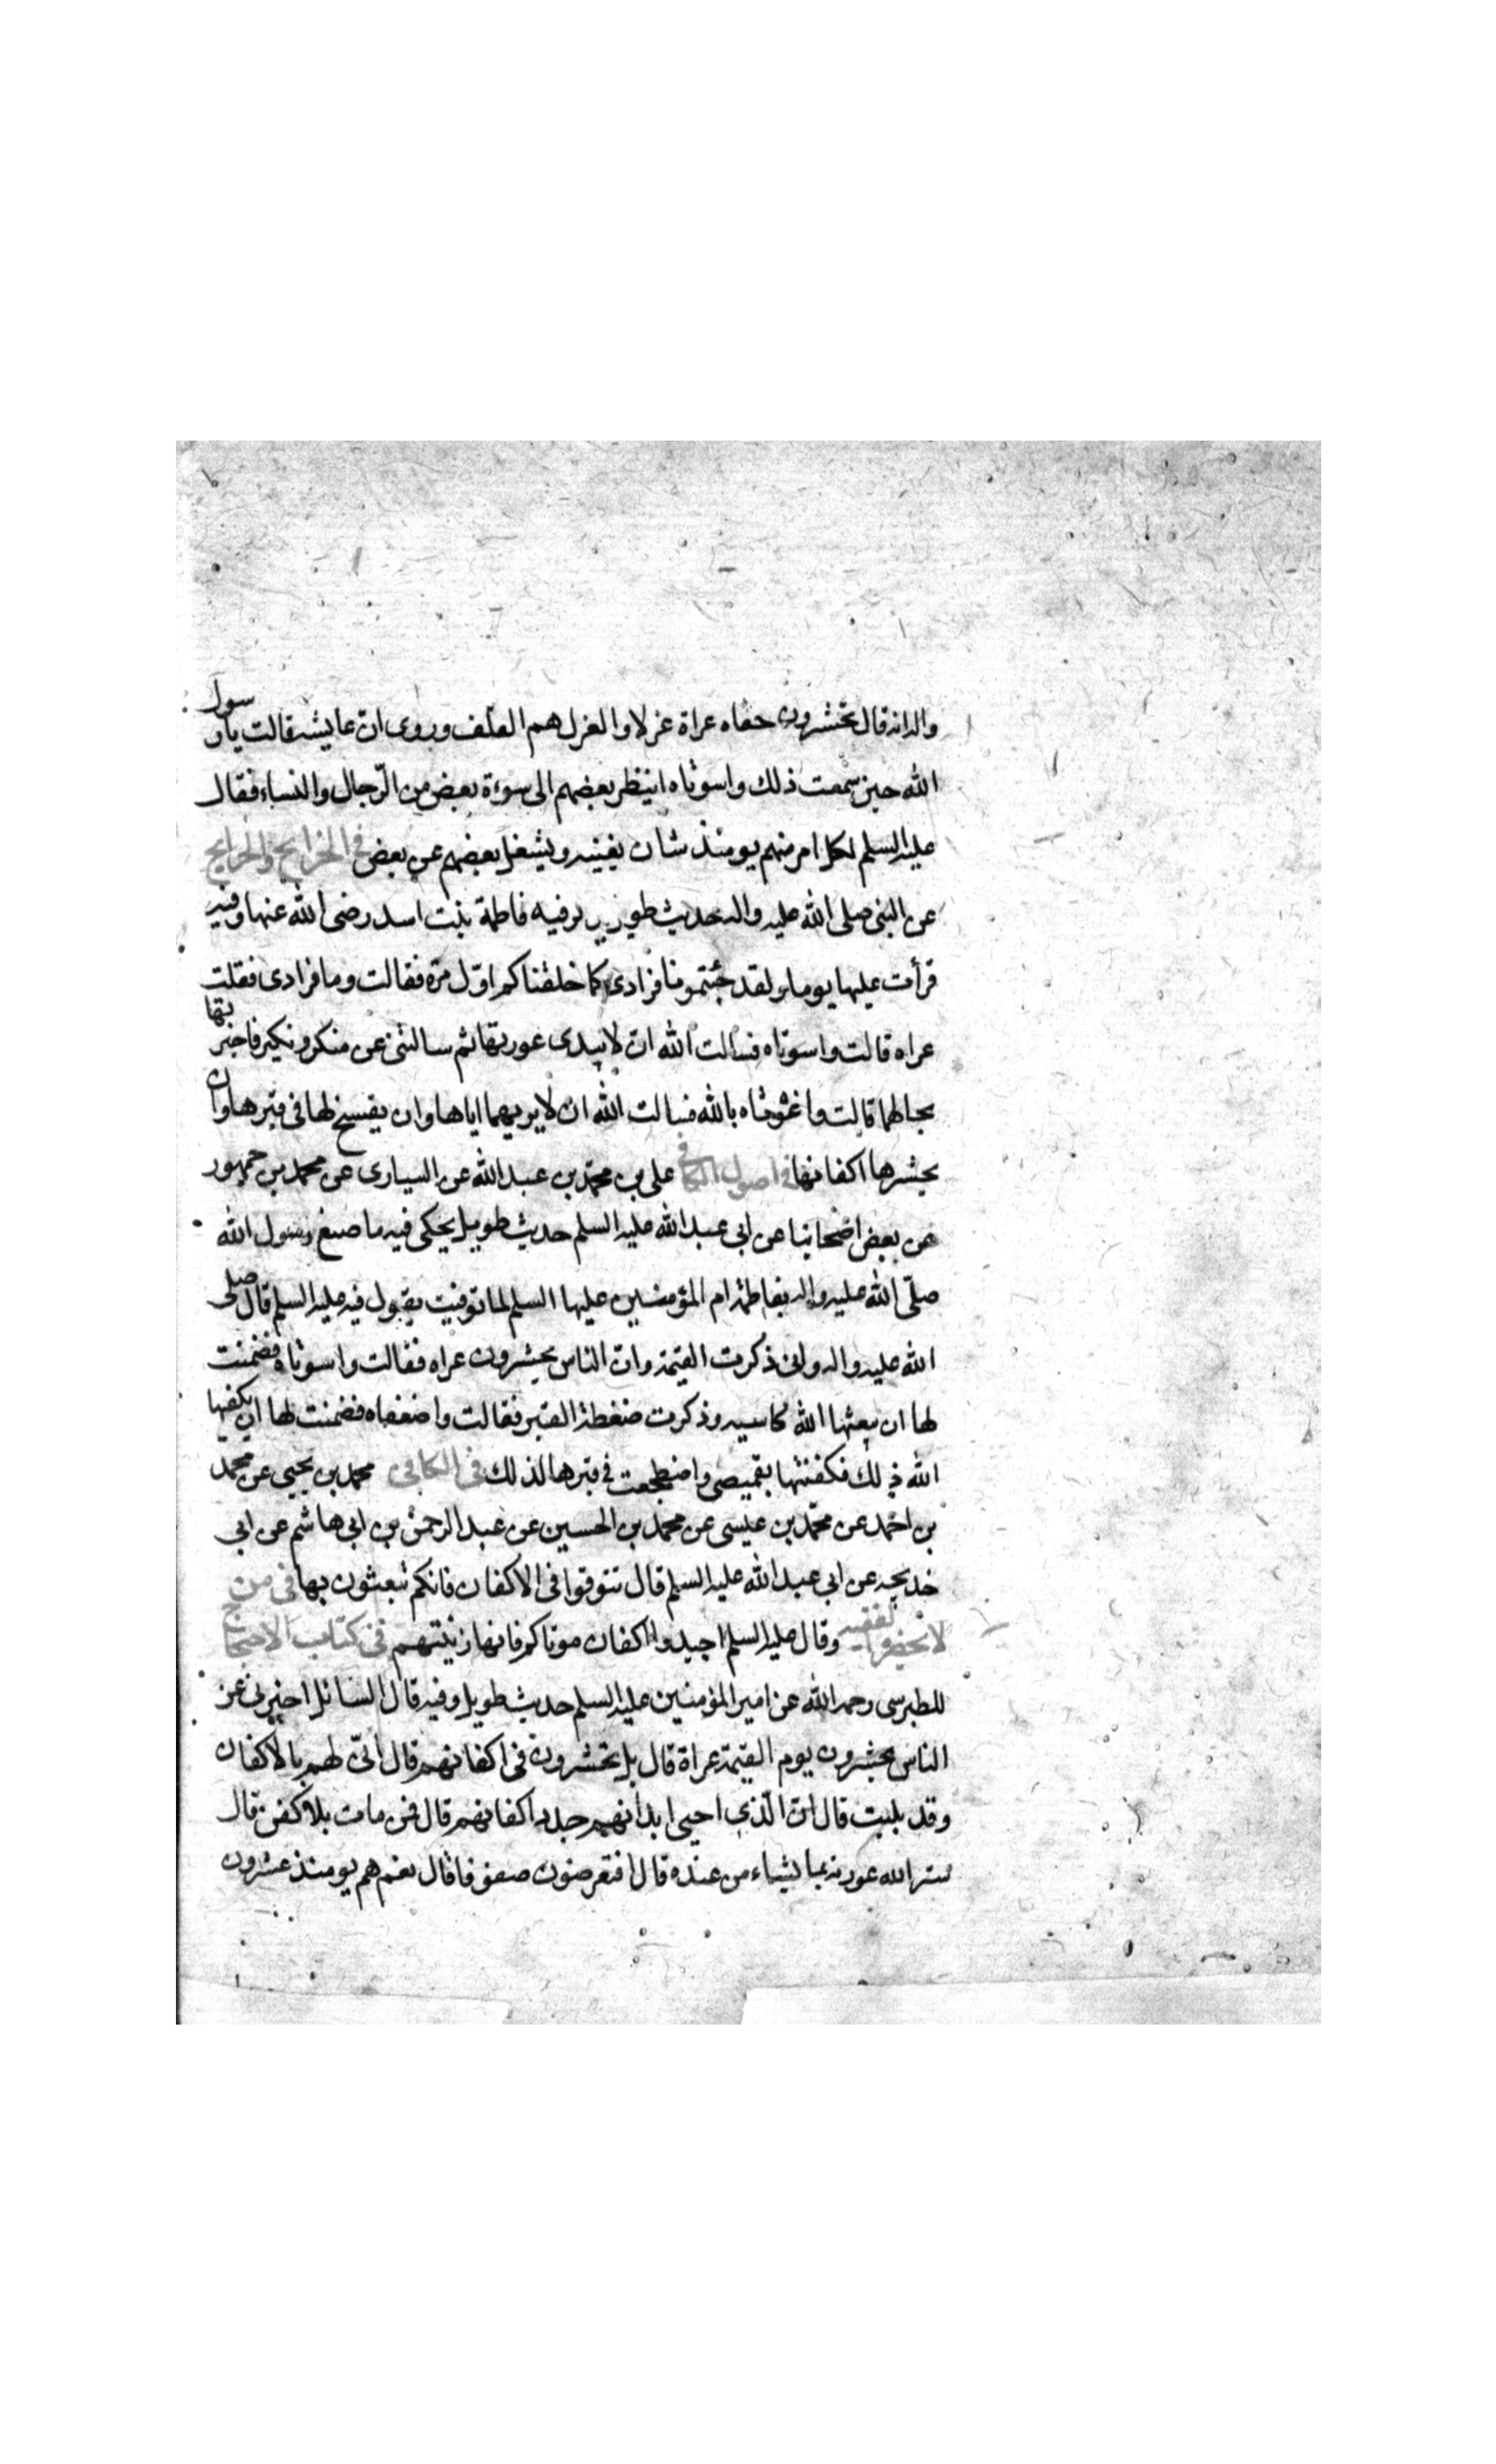 واله انه قال تحشرون حفاه عراة غزلا والغزل هم الغلف وروى ان عايشه قالت يا رسول
الله حين سمعت ذلك واسوتاه اينظر بعضهم الى سوءة بعض من الرجال والنساء فقال
عليه السلم لكل امر منهم يومئذ شان يغنيه ويشغل بعضهم عن بعض في الخرايج والجرايح
عن النبي صلى الله عليه واله حديث طويل فيه فاطمة بنت اسد رضى الله عنها وفيه
قرأت عليها يوما ولقد جئتمونا فرادى كما خلقناكم اول مرة فقالت وما فرادى فقلت
عراه قالت واسوتاه فسالت الله ان لا يبدى عورتها ثم سالتنى عن منكر ونكير فاخبرتها
بحالهما قالت واغوثاه بالله فسالت الله ان لا يريهما اياها وان يفسح لها فى قبرها وان
يحشرها اكفانها في اصول الكافي على بن محمد بن عبد الله عن السيارى عن محمد بن جمهور
عن بعض اصحابنا عن ابى عبد الله عليه السلم حديث طويل يحكى فيه ما صنع رسول الله
صلى الله عليه واله بفاطمة ام المؤمنين عليها السلم لما توفيت يقول فيه عليه السلم قال صلى
الله عليه واله وانى ذكرت القيمة وان الناس يحشرون عراه فقالت واسوتاه فضمنت
لها ان يبعثها الله كاسيه وذكرت ضغطة القبر فقالت واضعفاه فضمنت لها ان يكفيها
الله ذلك فكفنتها بقميصى واضطجعت في قبرها لذلك فى الكافى محمد بن يحيى عن محمد
بن احمد عن محمد بن عيسى عن محمد بن الحسين عن عبد الرحمن بن ابى هاشم عن ابى
خديجه عن ابى عبد الله عليه السلم قال تنوقوا فى الاكفان فانكم تبعثون بها فى من
لا يحضره الفقيه وقال عليه السلم اجيدوا اكفان موتاكم فانها زينتهم فى كتاب الاحتجاج
للطبرسى رحمه الله عن امير المؤمنين عليه السلم حديث طويل وفيه قال السائل اخبرنى عن
الناس يحشرون يوم القيمة عراة قال بل يحشرون فى اكفانهم قال انى لهم بالاكفان
وقد بليت قال ان الذى احيى ابدانهم جدد اكفانهم قال فمن مات بلا كفن قال
ستر الله عورته بما يشاء من عنده قال افتعرضون صفوفا قال نعم هم يومئذ عشرون